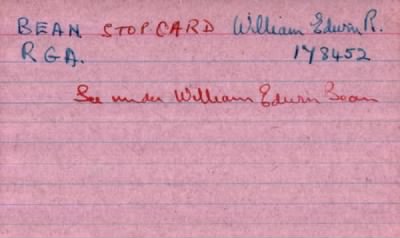 BEAN STOP CARD William Edwin R.
RGA. 178452
See under William Edwin Bean